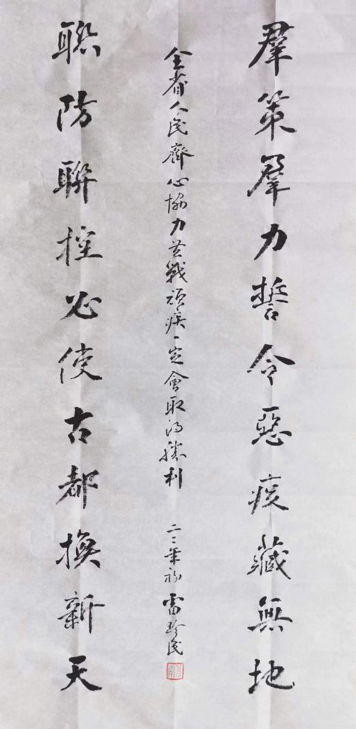 羣策羣力誓令惡疫藏無地
聯防聯控必使古都換新天
全省人民齊心協力共戰頑疾一定會取得勝利
二二年初 雷珍民